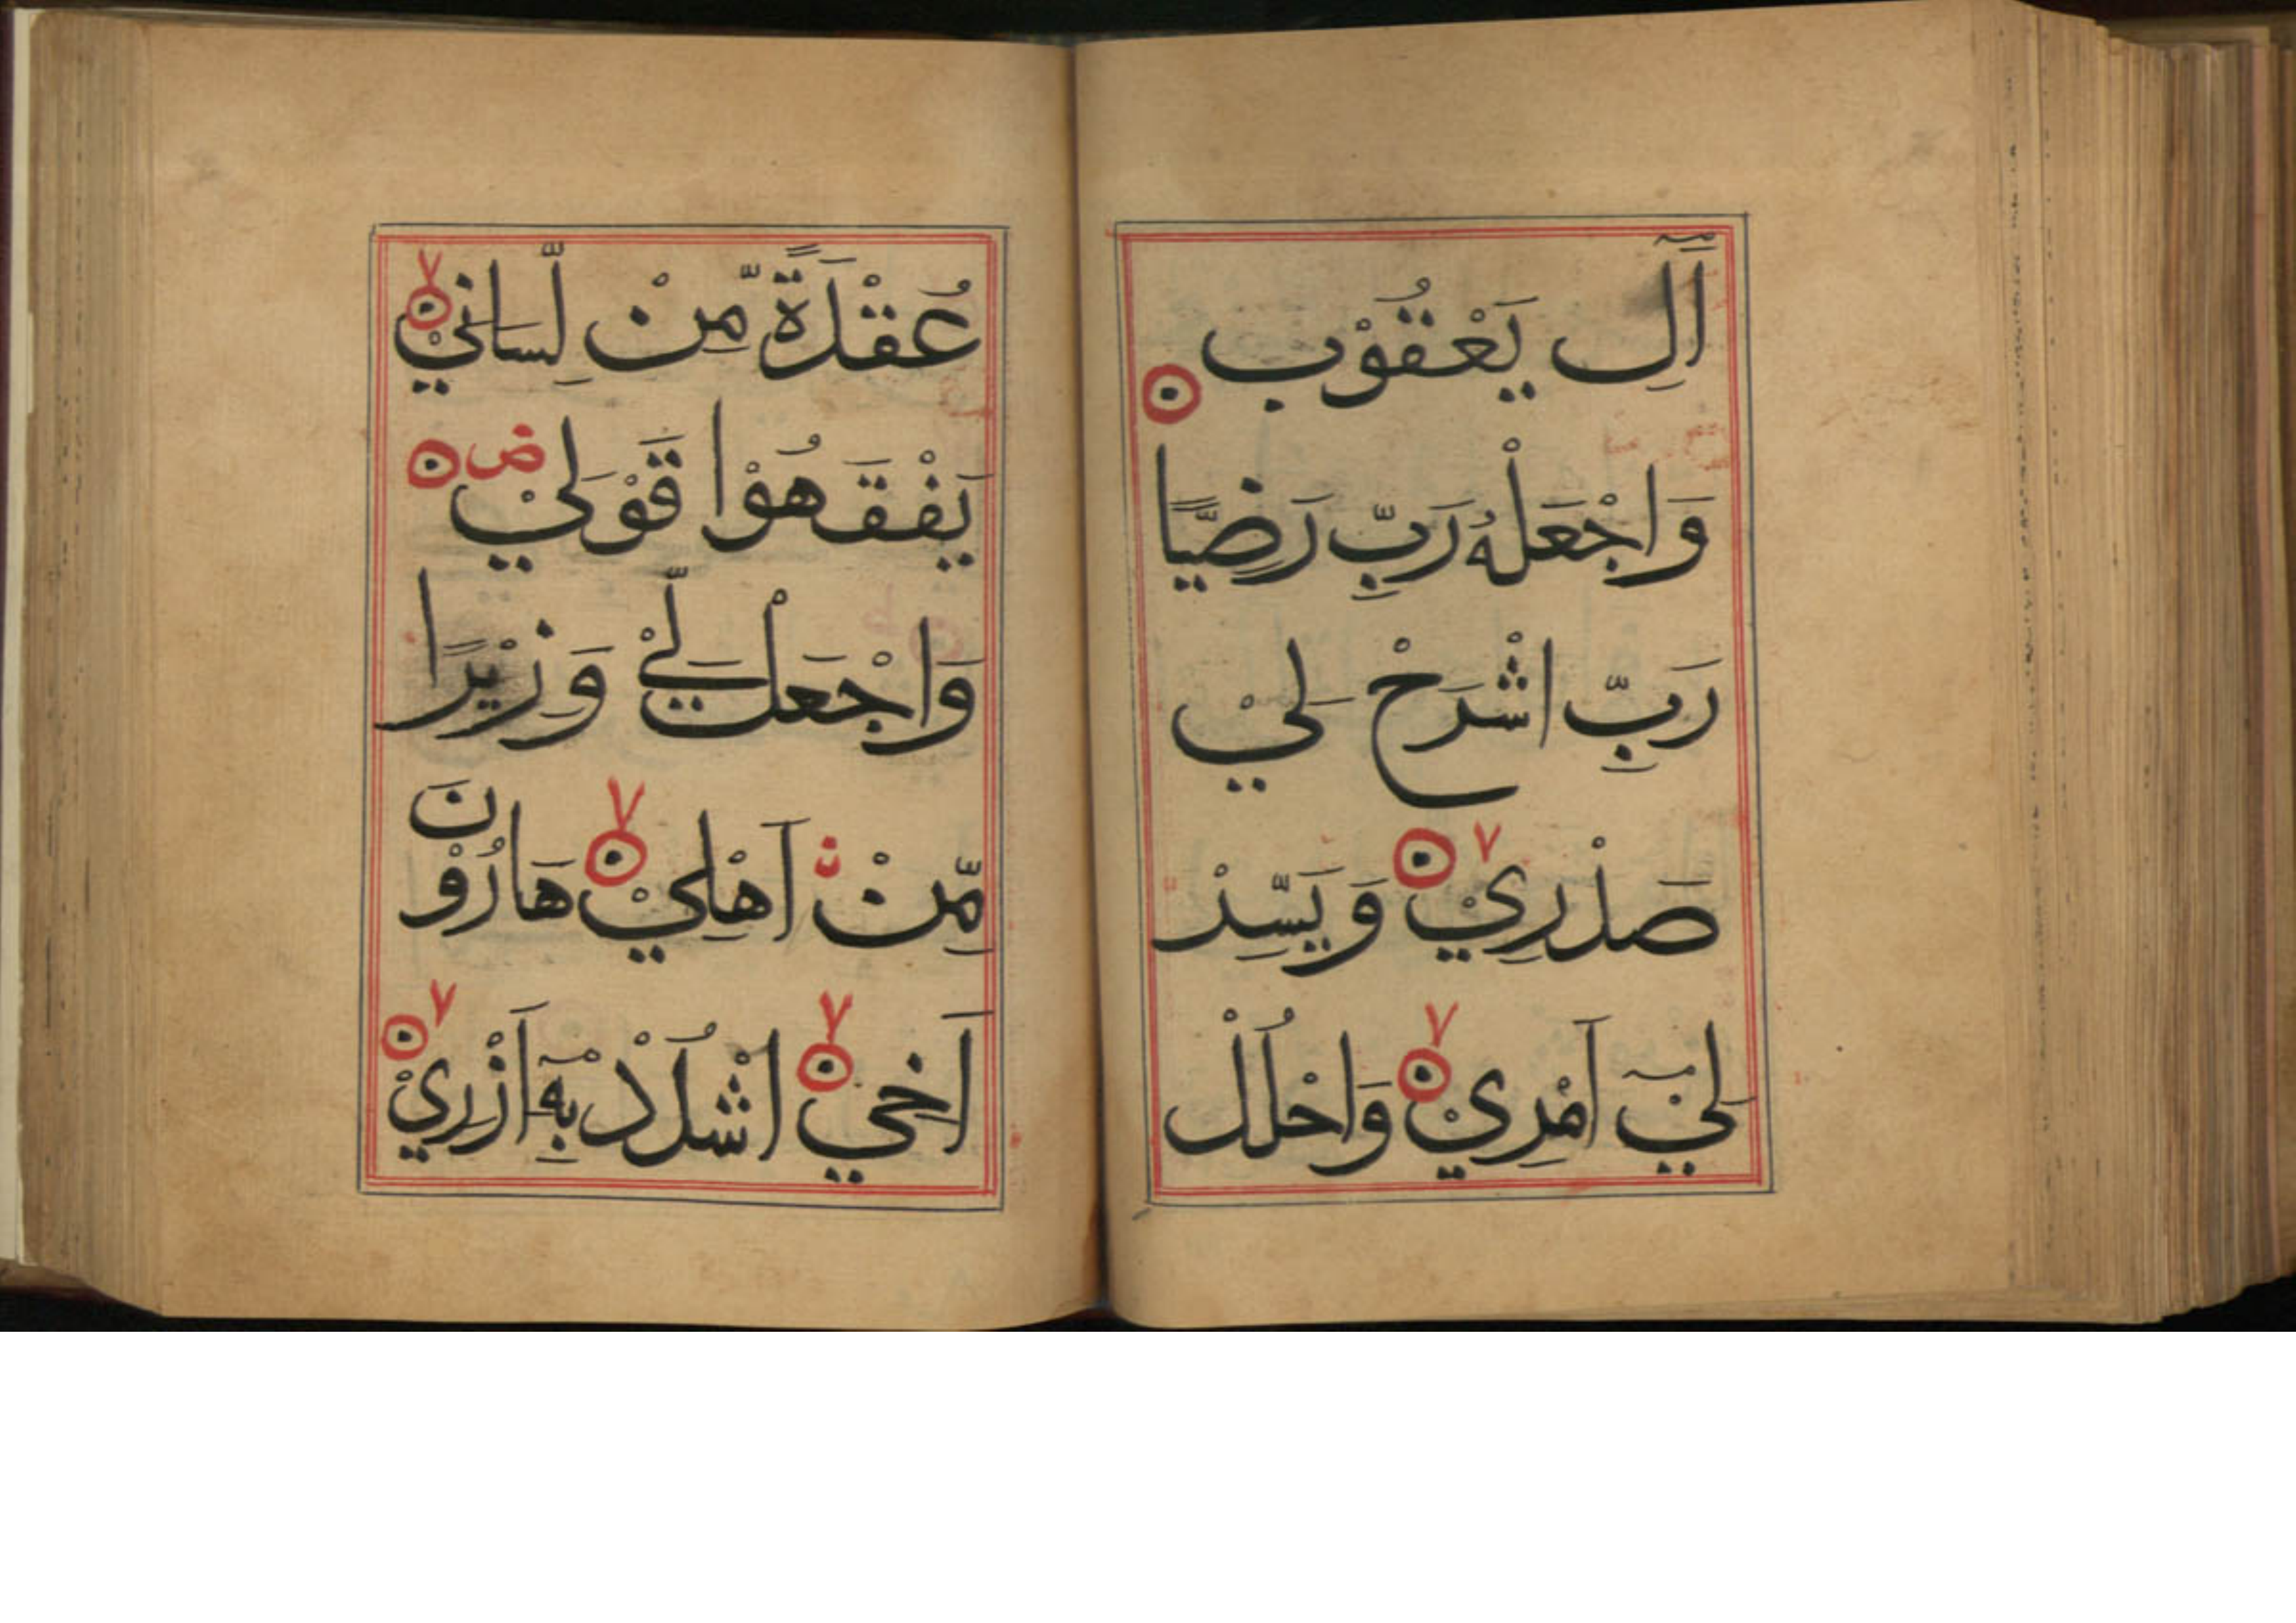 اٰلِ يَعْقُوْبَ ۝
وَاجْعَلْهُ رَبِّ رَضِيًّا
رَبِّ اشْرَحْ لِيْ
صَدْرِيْ ۝ ٧ وَيَسِّرْ
لِيْٓ اَمْرِيْ ۝ ٧ وَاحْلُلْ
عُقْدَةً مِّنْ لِّسَانِيْ ۝ ٧
يَفْقَهُوْا قَوْلِيْ ص ۝
وَاجْعَلْ لِّيْ وَزِيْرًا
مِّنْ اَهْلِيْ ۝ ٧ هَارُوْنَ
اَخِيْ ۝ ٧ اشْدُدْ بِهٖٓ اَزْرِيْ ۝ ٧